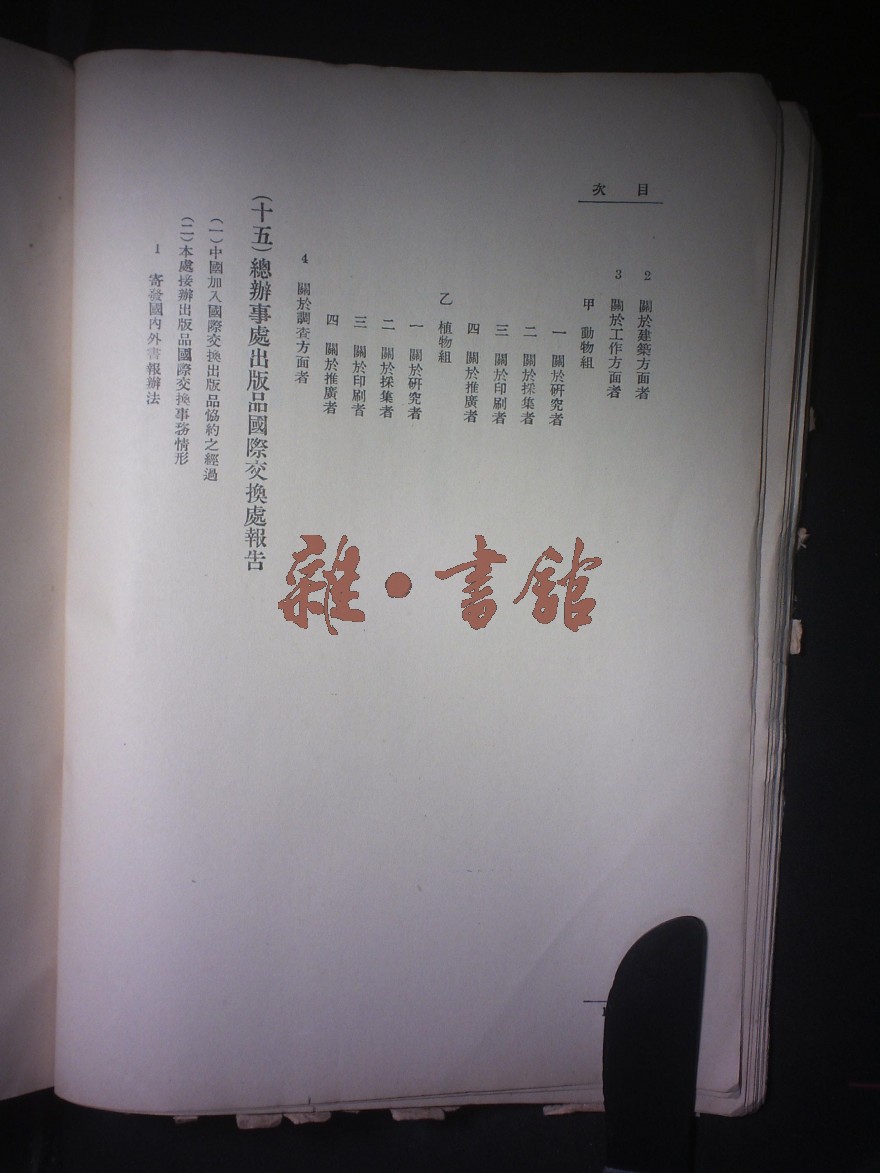 目次
2 關於建築方面者
3 關於工作方面者
甲 動物組
一 關於研究者
二 關於採集者
三 關於印刷者
四 關於推廣者
乙 植物組
一 關於研究者
二 關於採集者
三 關於印刷者
四 關於推廣者
4 關於調查方面者
(十五)總辦事處出版品國際交換處報告
(一)中國加入國際交換出版品協約之經過
(二)本處接辦出版品國際交換事務情形
1 寄發國內外書報辦法
雜·書館